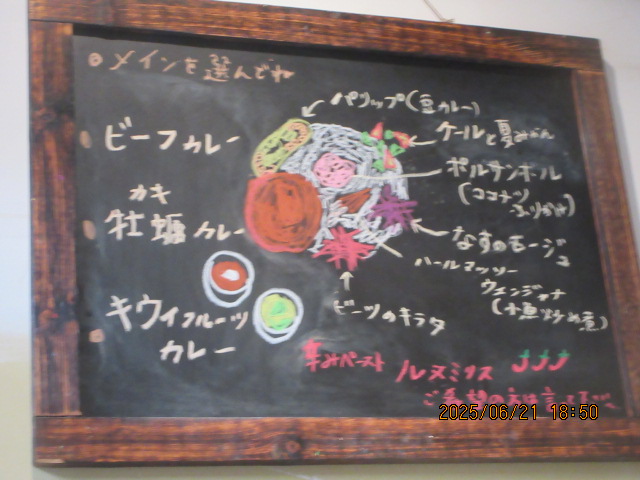 メインを選んでね
ビーフカレー
カキ
牡蠣カレー
キウイフルーツ
カレー
パリップ(豆カレー)
ケールと夏みかん
ポルサンボール
(ココナツ
ふりかけ)
なすのモージュ
ハールマッソー
ウェンジャナ
(小魚炒め煮)
ビーツのキラタ
辛みペースト ルヌミリス
ご希望の方は言って下さい
2025/06/21 18:50